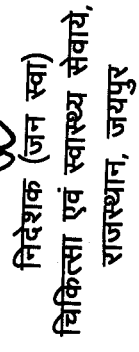 निदेशक (जन स्वा)
चिकित्सा एवं स्वास्थ्य सेवाये,
राजस्थान, जयपुर